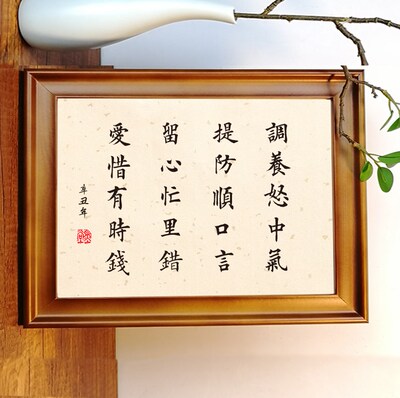 調養怒中氣
提防順口言
留心忙里錯
愛惜有時錢
辛丑年